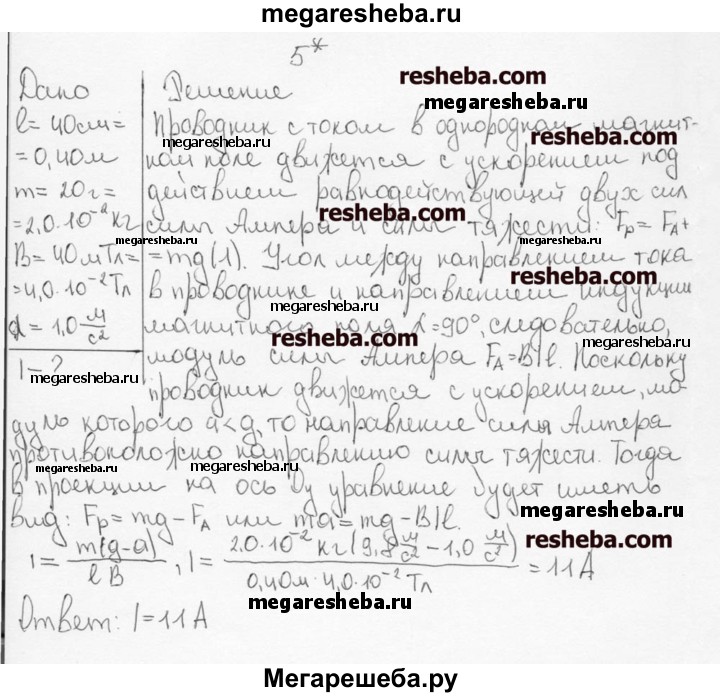 megaresheba.ru
5*
Дано
l= 40см=
=0,40м
m= 20г=
=2,0·10⁻² кг
B= 40мТл=
=4,0·10⁻² Тл
a= 1,0 м/с²
I-?
Решение
Проводник с током в однородном магнит-
ном поле движется с ускорением под
действием равнодействующей двух сил
силы Ампера и силы тяжести: Fp= FA+
=mg(1). Угол между направлением тока
в проводнике и направлением индукции
магнитного поля α=90°, следовательно,
модуль силы Ампера FA=BIl. Поскольку
проводник движется с ускорением, мо-
дуль которого a<g, то направление силы Ампера
противоположно направлению силы тяжести. Тогда
в проекции на ось Oy уравнение будет иметь
вид: Fp= mg-FA или ma=mg-BIl.
I= m(g-a)/lB, I= 2,0·10⁻² кг(9,8 м/с² -1,0 м/с²)/0,40м·4,0·10⁻² Тл =11А
Ответ: I=11А
resheba.com
megaresheba.ru
resheba.com
resheba.com
megaresheba.ru
megaresheba.ru
megaresheba.ru
resheba.com
resheba.com
megaresheba.ru
megaresheba.ru
megaresheba.ru
megaresheba.ru
megaresheba.ru
resheba.com
megaresheba.ru
Мегарешеба.ру